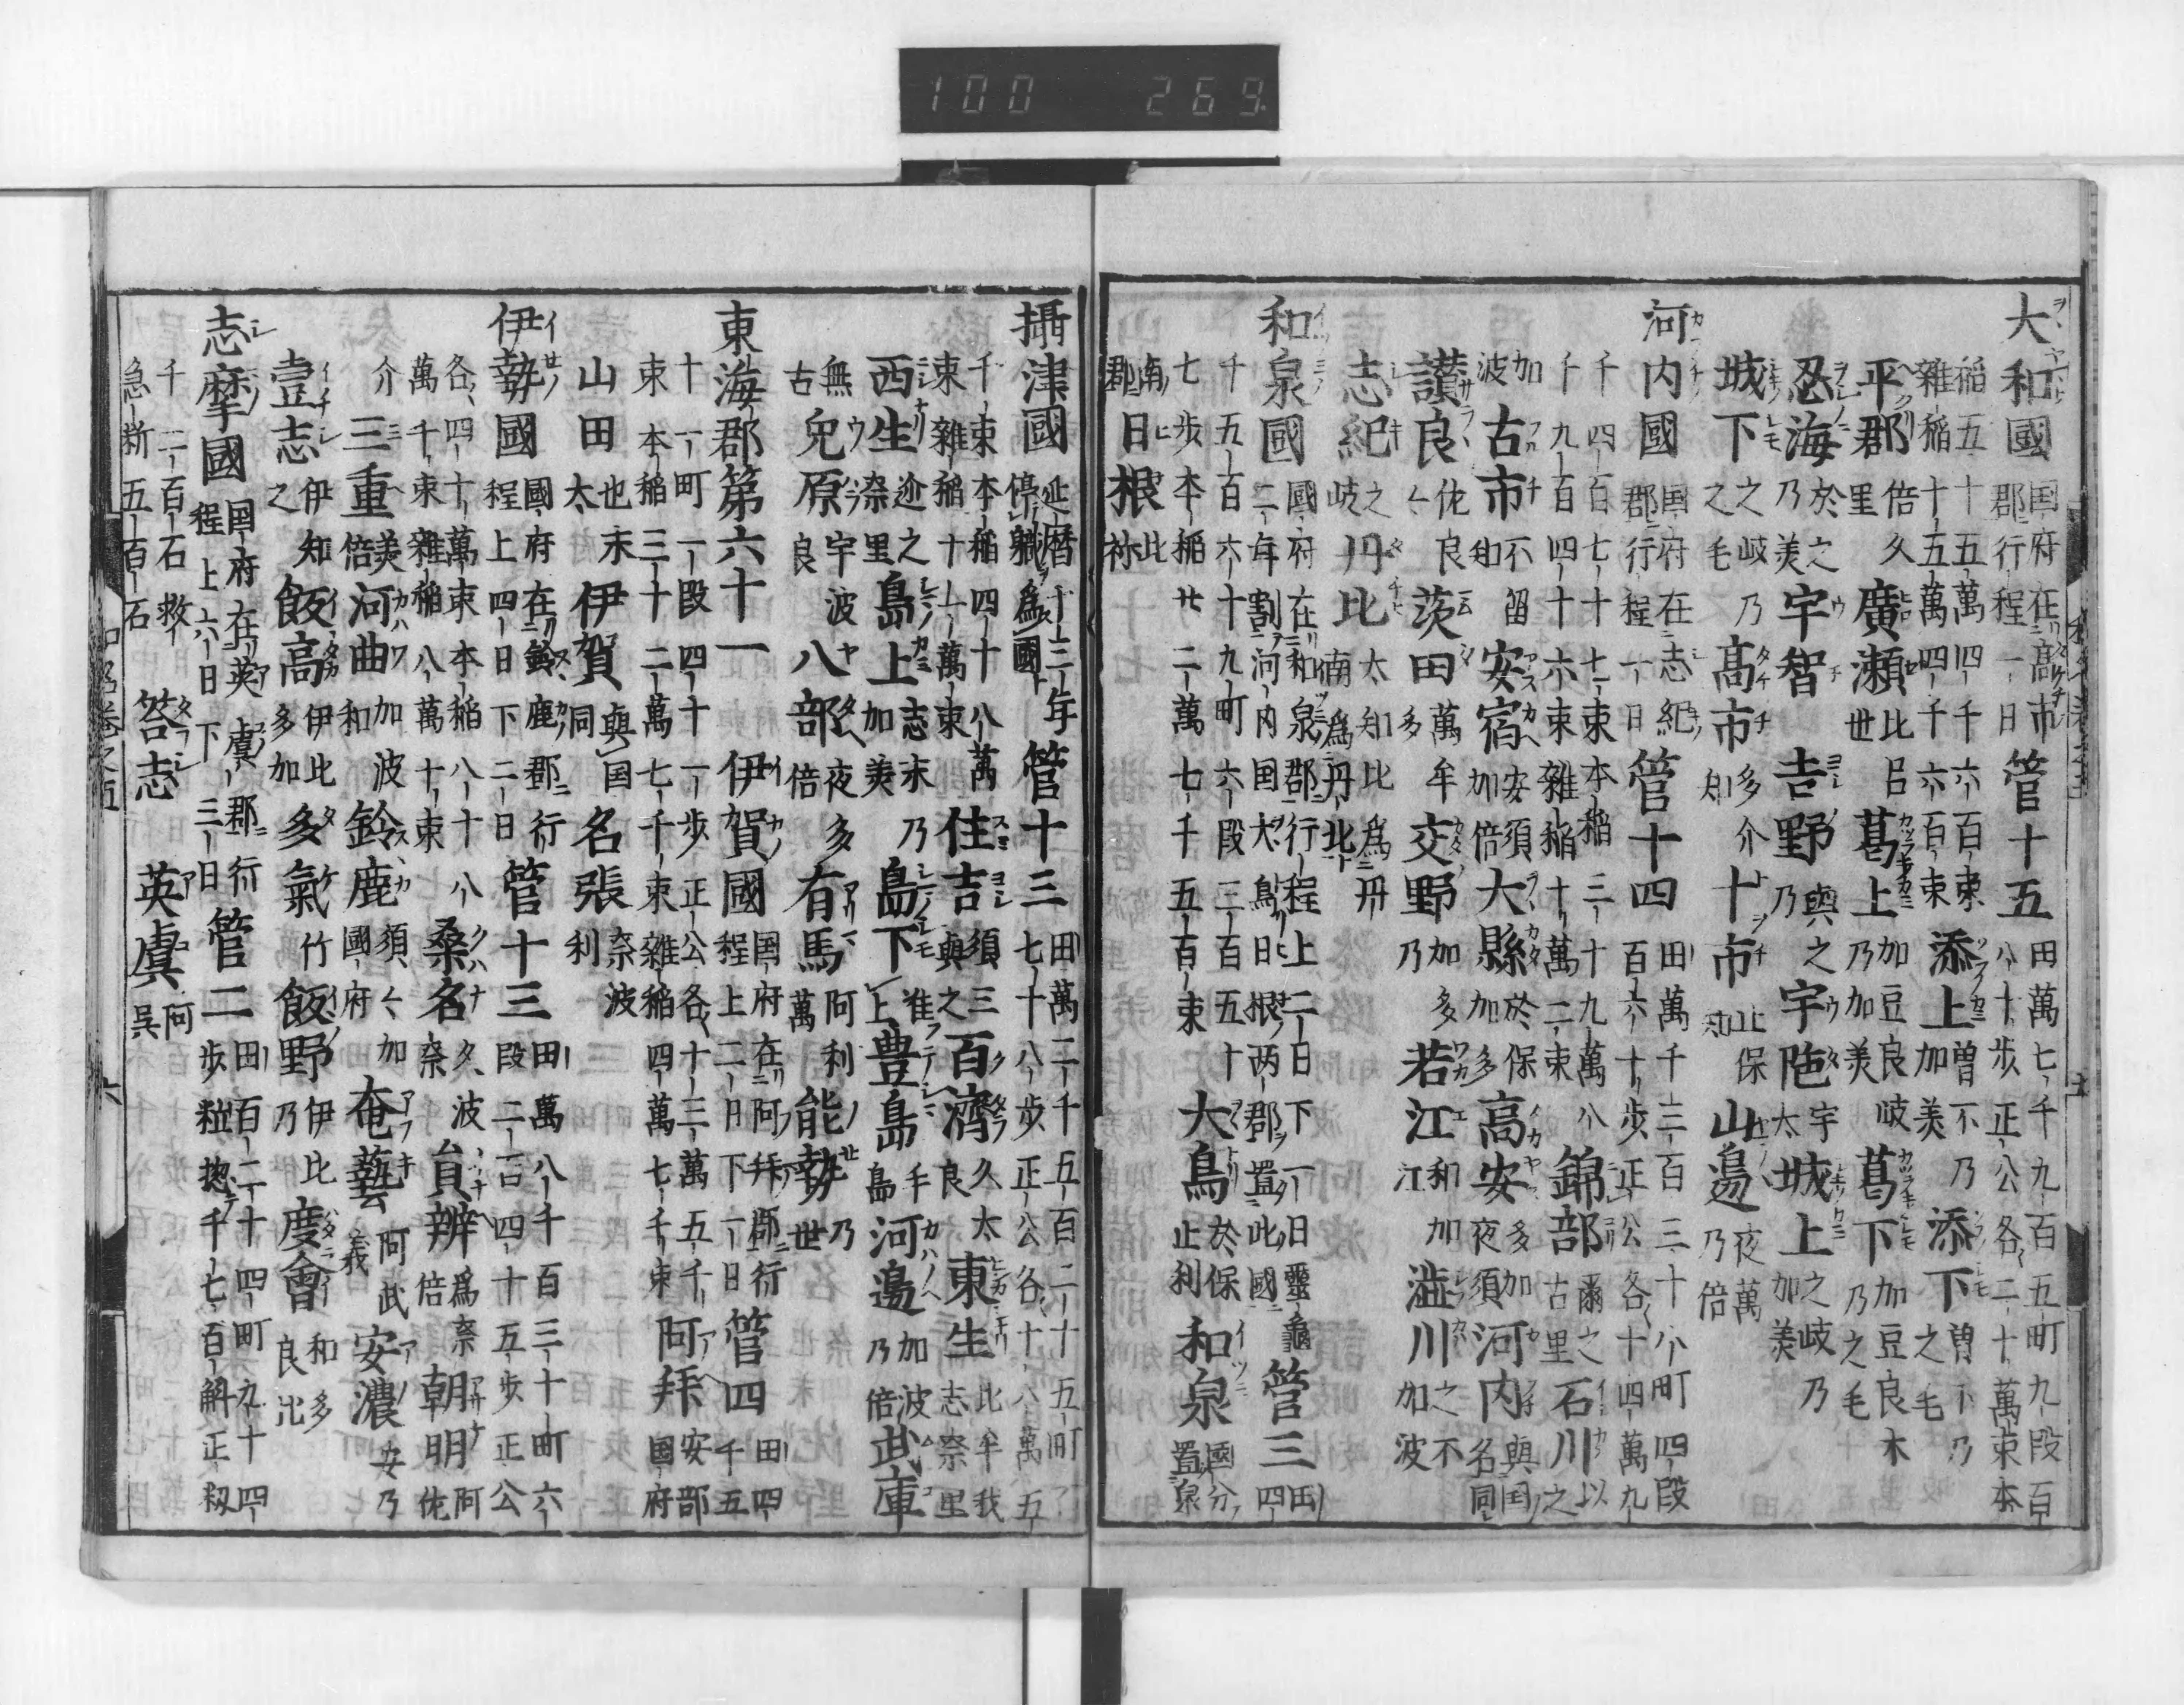 100 269.
大和國 国府在高市郡行程一日 管十五 田萬七千九百五町九段百八十歩正公各二十萬束本
稲五十五萬四千六百束雜稲十五萬四千六百束 添上 曽不乃加美 添下 曽不乃之毛
平郡 倍久里 廣瀬 比呂世 葛上 加豆良岐乃加美 葛下 加豆良木乃之毛
忍海 於之乃美 宇智 吉野 與之乃 宇陁 宇太 城上 之岐乃加美
城下 之岐乃之毛 高市 多介知 十市 止保知 山邊 夜萬乃倍
河内國 国府在志紀郡行程一日 管十四 田萬千三百三十八町四段百六十歩正公各十四萬九
千四百七十七束本稲三十九萬八千九百四十六束雜稲十萬二束 錦部 爾之古里 石川 以之
加波 古市 不留知 安宿 安須加倍 大縣 於保加多 高安 多加夜須 河内 與国名同
讃良 佐良々 茨田 萬牟多 交野 加多乃 若江 和加江 澁川 之不加波
志紀 之岐 丹比 太知比為丹南為丹北
和泉國 國府在和泉郡行程上二日下一日靈龜二年割河内国大鳥日根两郡置此國 管三 田四
千五百六十九町六段三百五十 大鳥 於保止利 和泉 國分置泉
七歩本稲廿二萬七千五百束
南郡 日根 比祢
攝津國 延暦十三年停職為國 管十三 田萬二千五百二十五町七十八歩正公各十八萬五
千束本稲四十八萬束雜稲十一萬束 住吉 須三與之 百濟 久太良 東生 比牟我志奈里
西生 迩之奈里 島上 志末乃加美 島下 准上 豊島 手島 河邊 加波乃倍 武庫
無古 兔原 宇波良 八部 夜多倍 有馬 阿利萬 能勢 乃世
東海郡第六十一 伊賀國 国府在阿拜郡行程上二日下一日 管四 田四千五
十一町一段四十一歩正公各十三萬五千束本稲三十二萬七千束雜稲四萬七千束 阿拜 安部國府
山田 也末太 伊賀 與国同 名張 奈波利
伊勢國 國府在鈴鹿郡行程上四日下二日 管十三 田萬八千百三十町六段二百四十五歩正公
各四十萬束本稲八十八萬千束雜稲八萬十束 桑名 久波奈 員辨 為奈倍 朝明 阿佐
介 三重 美倍 河曲 加波和 鈴鹿 須々加國府 奄藝 阿武義 安濃 安乃
壹志 伊知之 飯高 伊比多加 多氣 竹 飯野 伊比乃 度會 和多良比
志摩國 国府在英虞郡行程上六日下三日 管二 田百二十四町九十四歩粒惣千七百解正税
千二百石救急新五百石 荅志 英虞 阿呉